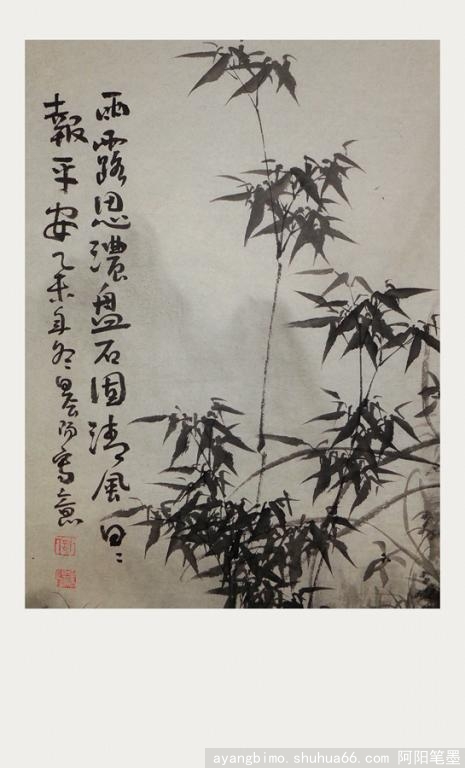 雨露恩濃盤石固清風日〻
報平安乙未年冬阳寫意
ayangbimo.shuhua66.com 阿阳笔墨